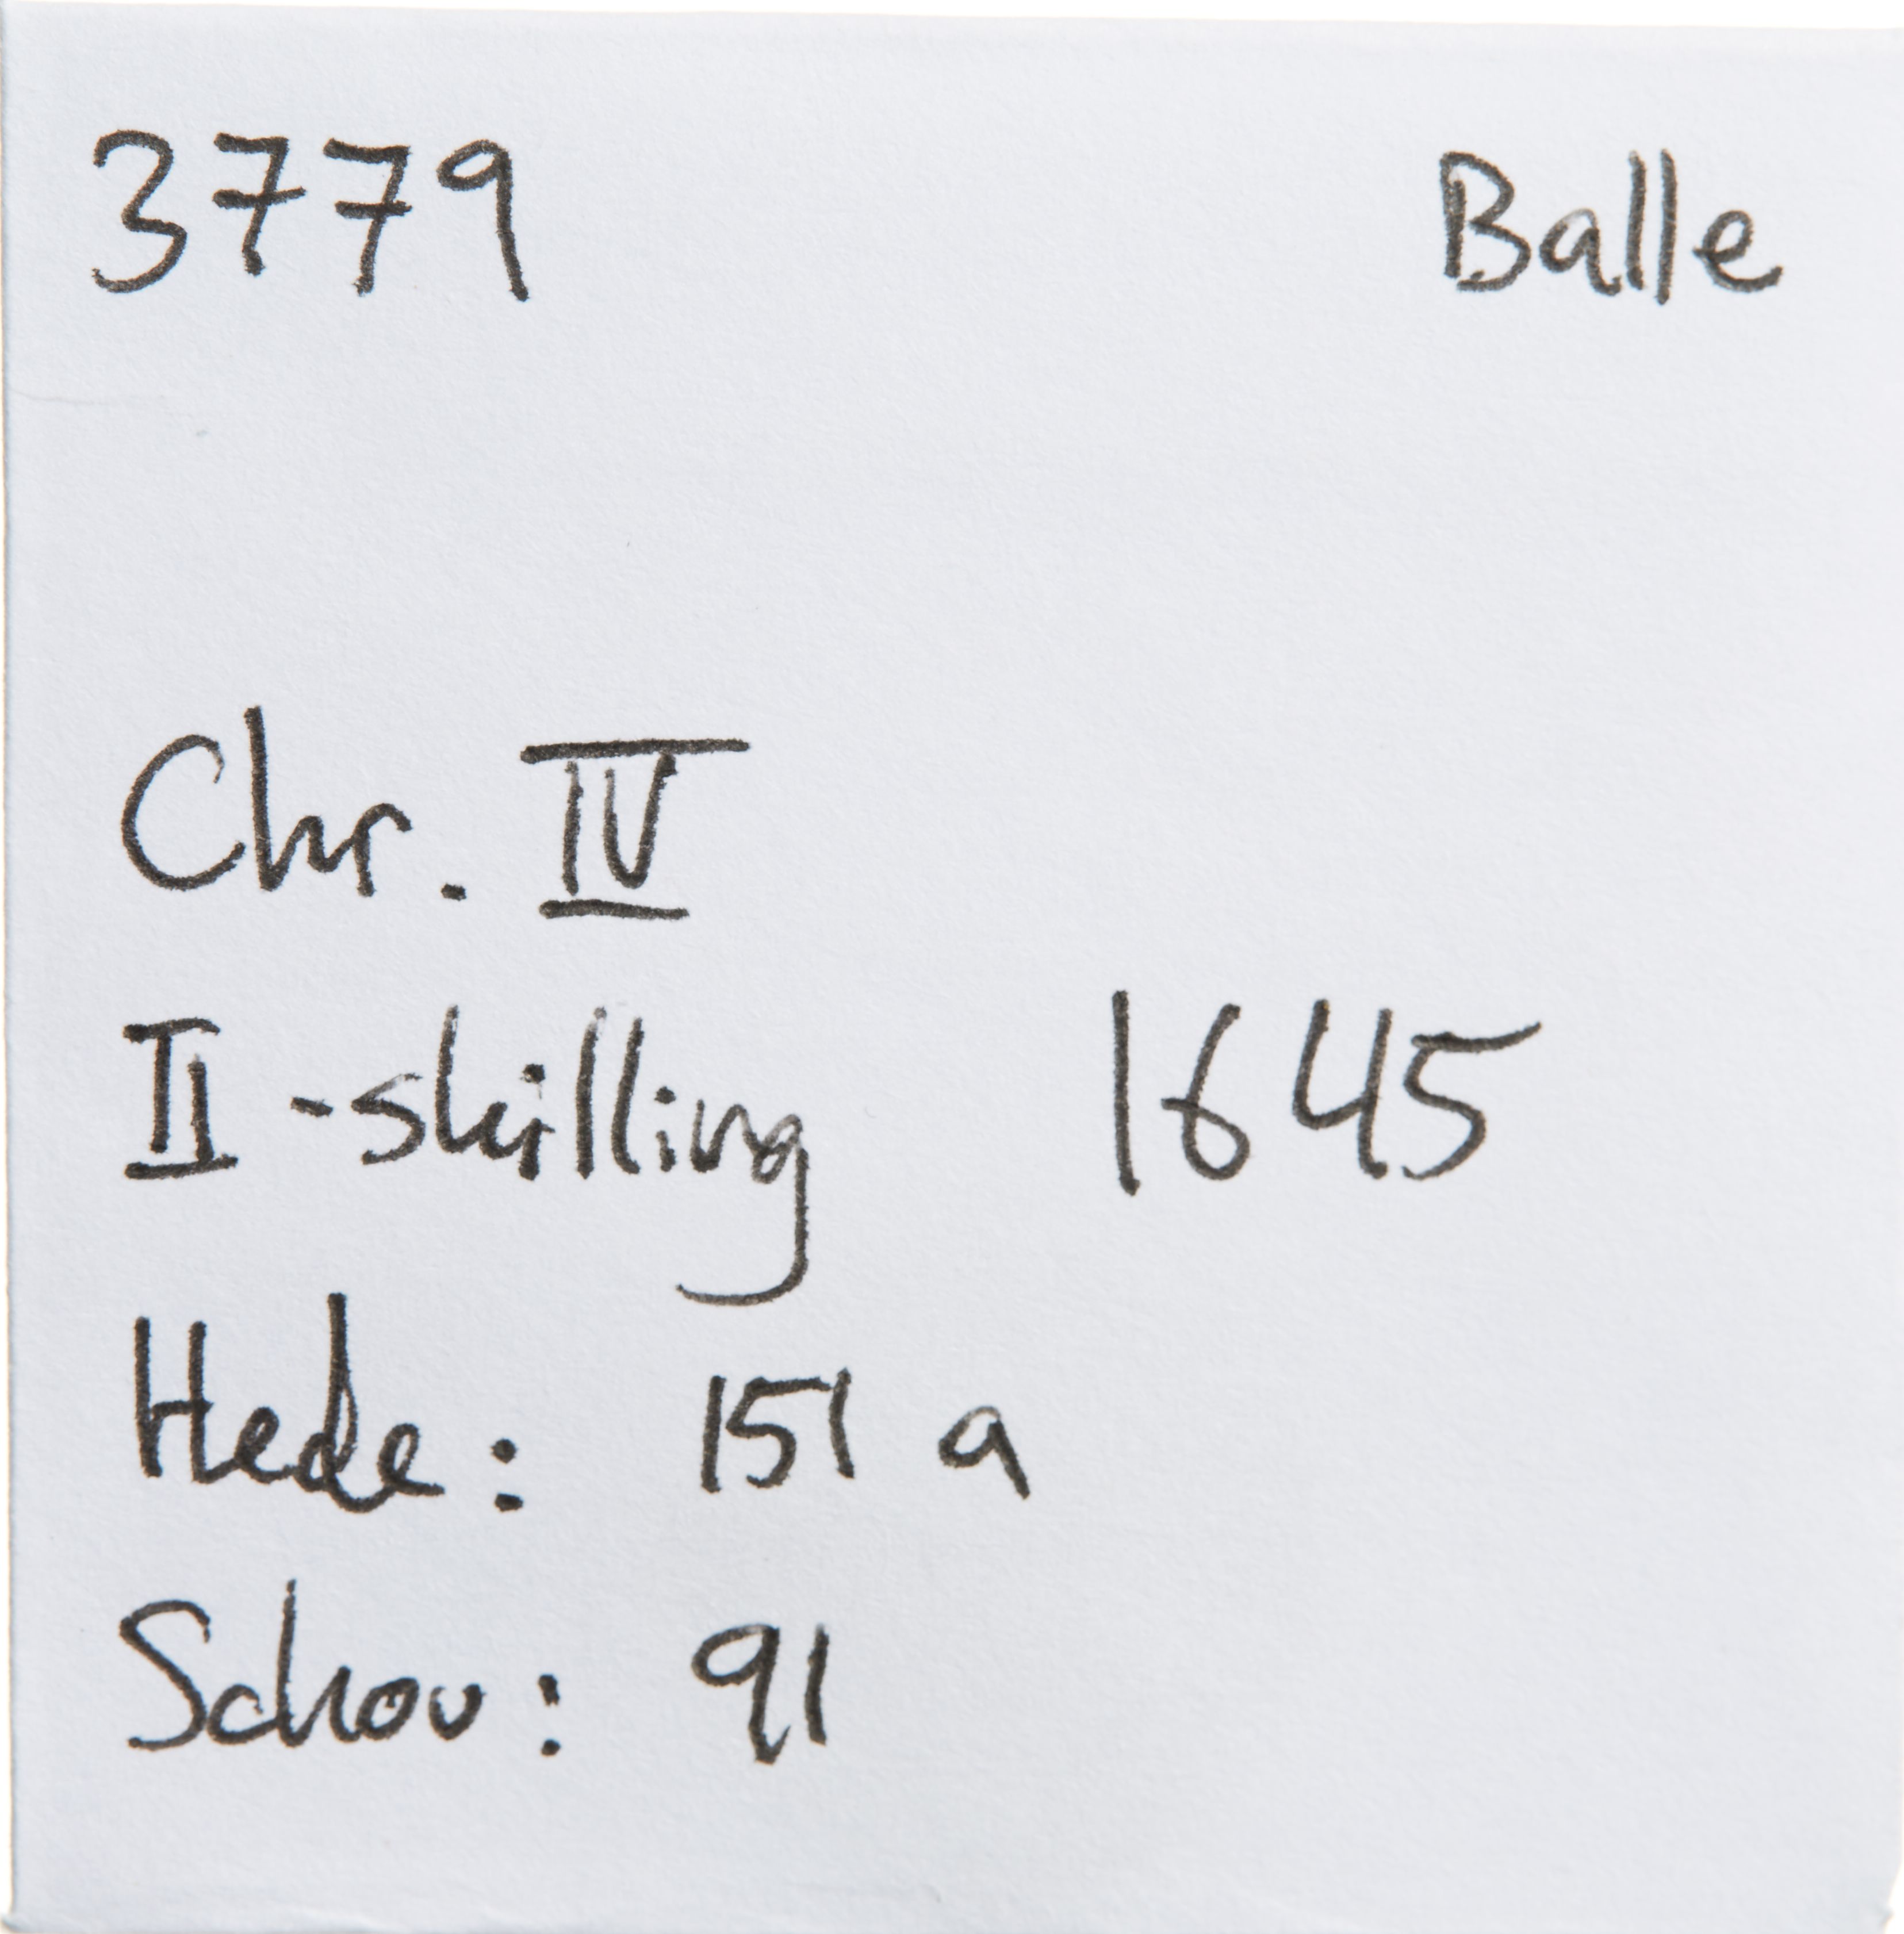 3779 Balle
Chr. IV
II-skilling 1645
Hede: 151 a
Schou: 91